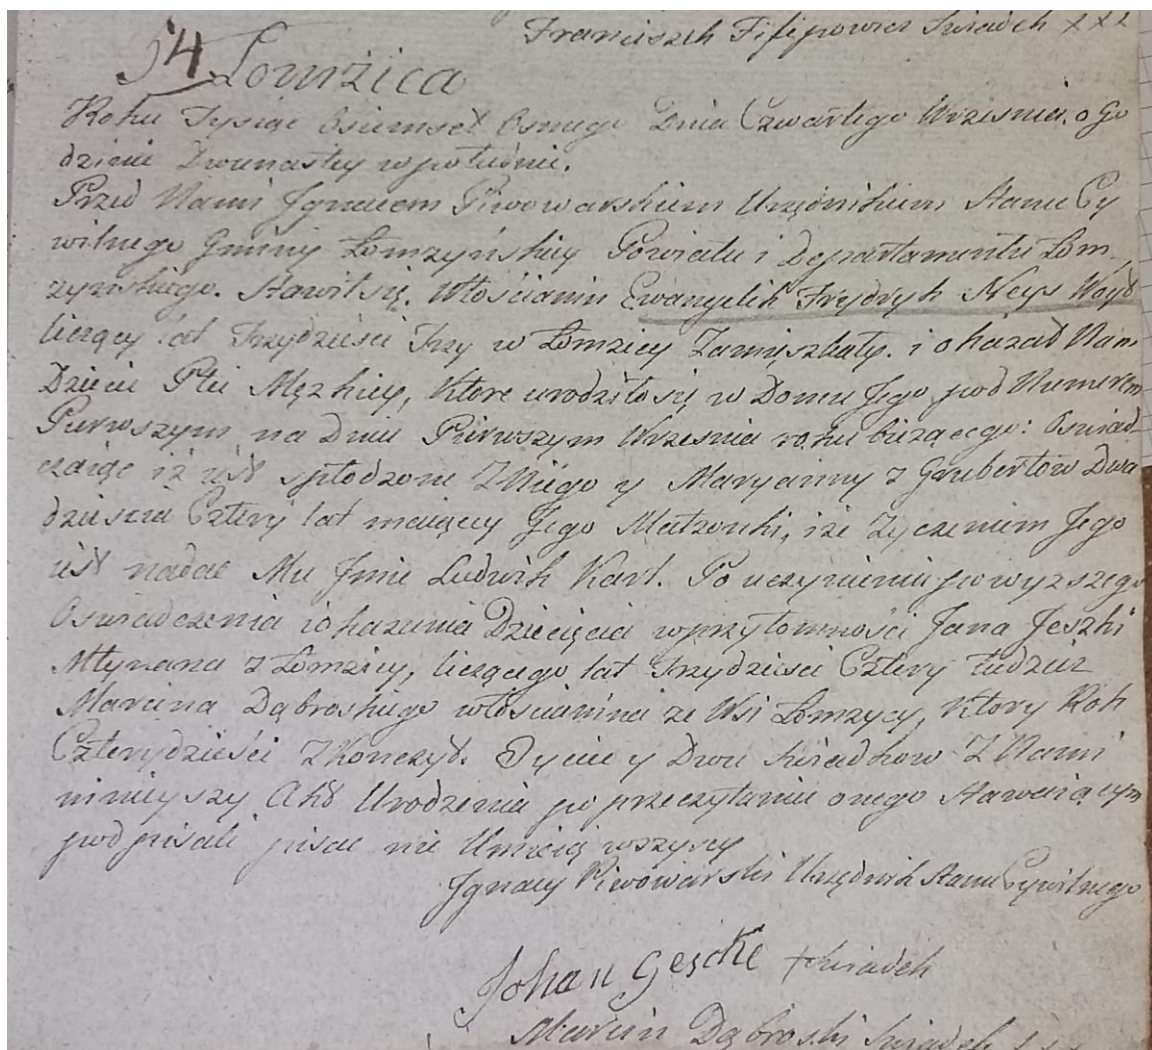 Franciszek Fifipowicz Swiadek XXX
54 Lomżica
Roku Tysiąc Osiemset Osmego Dnia Czwartego Wrzesnia, o Go
dzinie Dwunastey w południe.
Przed Nami Jgnacem Piwowarskiem Urzędnikiem Stanu Cy
wilnego Gminy Łomzyńskiey Powiatu i Departamentu Łom
zynskiego. Stawił się. Włościanin Ewangelik Frydrych Neys
liczący lat Trzydziesci Trzy w Łomzicy Zamięszkały. i okazał Nam
Dziecie Płci Męzkiey, Ktore urodziło się w Domu Jego pod Numerem
Pierwszym na Dniu Pierwszym Wrzesnia roku biezącego: Oswiad
czaiąc iż iest spłodzone Z Niego y Maryanny z Grubertow Dwa
dziescia Cztery lat maiącey Jego Małzonki, i ze Zyczeniem Jego
iest nadac Mu Jmie Ludwik Karl. Po uczynieniu powyzszego
Oswiadczenia i okazania Dziecięcia w przytomności Jana Jeszki
Młynarza z Łomzicy, liczącego lat Trzydziesci Cztery tudziez
Marcina Dąbroskiego włościanina ze Wsi Łomzycy, Ktory Rok
Czterydzieści Zkonczył. Oyciec y Dwu Swiadkow Z Nami
ninieyszy Akt Urodzenia po przeczytaniu onego Stawaiącym
podpisali pisac nie Umieią wszyscy
Jgnacy Piwowarski Urzędnik Stanu Cywilnego
Johan Geschke + Swiadek
Marcin Dąbroski Swiadek XXX